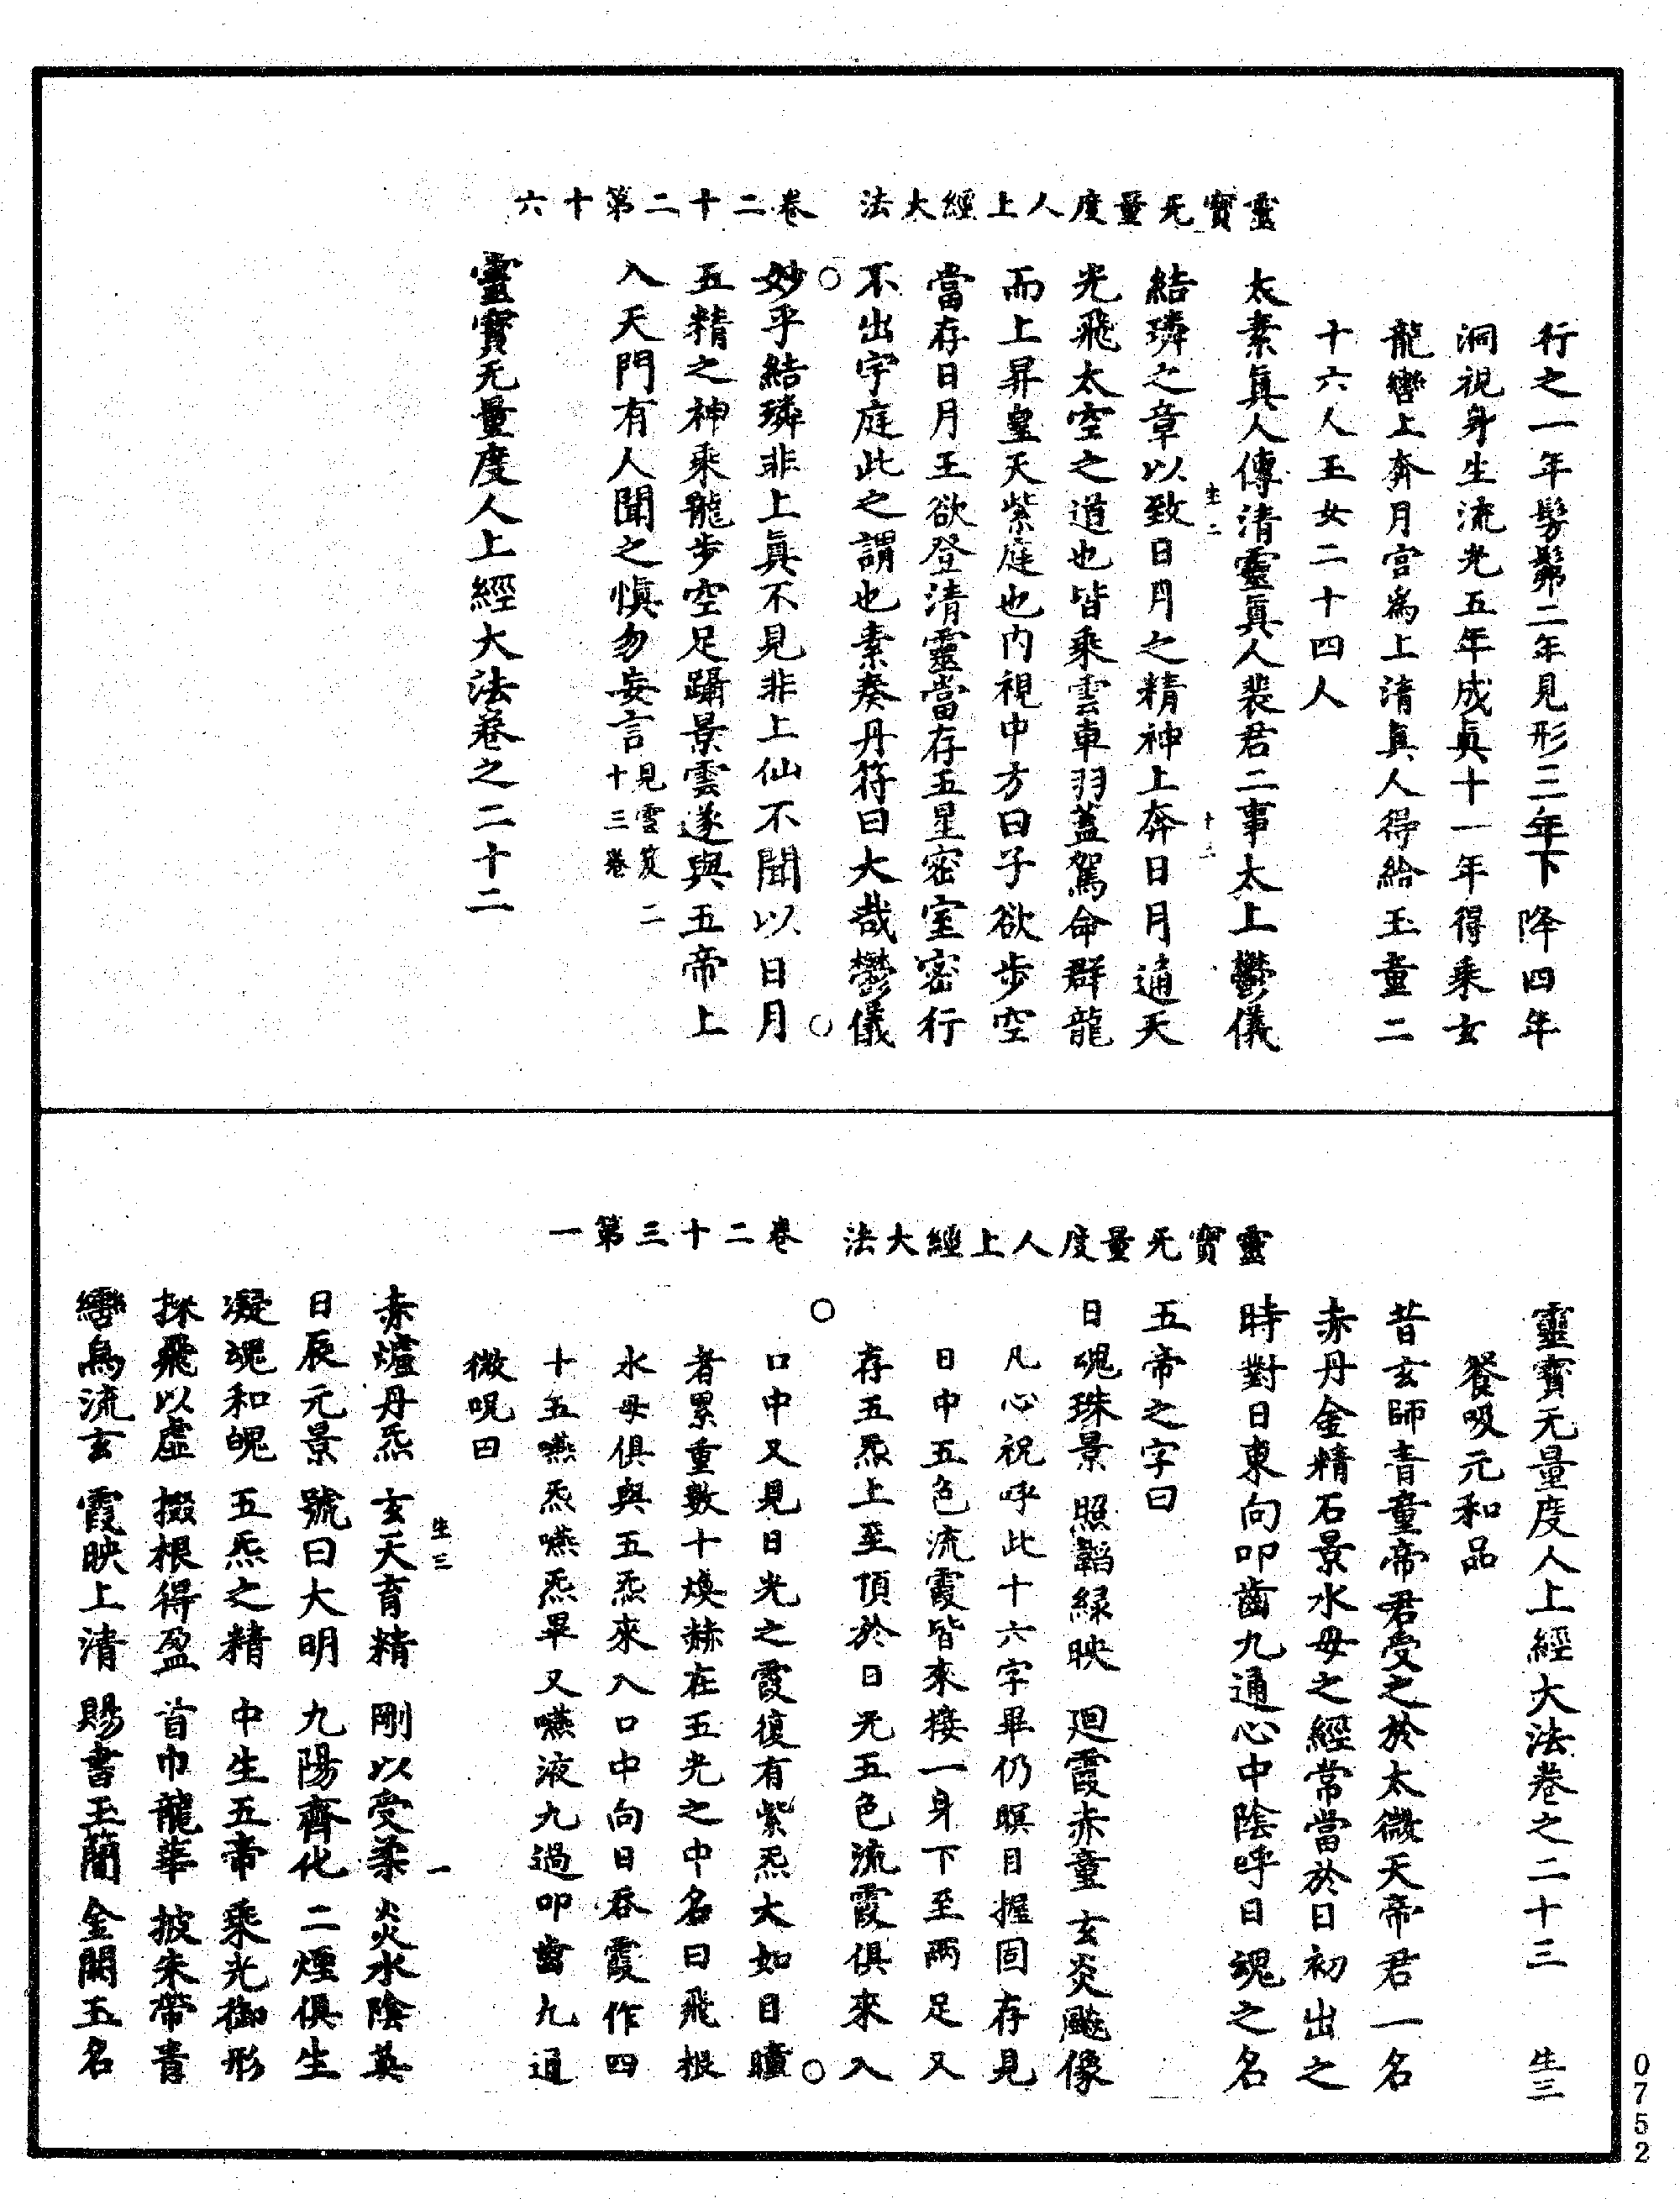 靈寶无量度人上經大法　卷二十二第十六
行之一年髣髴二年見形三年下降四年
洞視身生流光五年成真十一年得乘玄
龍轡上奔月宮為上清真人得給玉童二
十六人玉女二十四人
太素真人傳清靈真人裴君二事太上鬱儀
生二　十六
結璘之章以致日月之精神上奔日月通天
光飛太空之道也皆乘雲車羽蓋駕命群龍
而上昇皇天紫庭也內視中方曰子欲步空
當存日月王欲登清靈當存五星密室密行
不出宇庭此之謂也素奏丹符曰大哉鬱儀
妙乎結璘非上真不見非上仙不聞以日月
五精之神乘龍步空足躡景雲遂與五帝上
入天門有人聞之慎勿妄言見雲笈二
十三卷
靈寶无量度人上經大法卷之二十二
靈寶无量度人上經大法　卷二十三第一
靈寶无量度人上經大法卷之二十三　生三
餐吸元和品
昔玄師青童帝君受之於太微天帝君一名
赤丹金精石景水母之經常當於日初出之
時對日東向叩齒九通心中陰呼日魂之名
五帝之字曰
日魂珠景　照韜綠映　廻霞赤童　玄炎飈像
凡心祝呼此十六字畢仍瞑目握固存見
日中五色流霞皆來接一身下至兩足又
存五炁上至頂於日光五色流霞俱來入
口中又見日光之霞復有紫炁大如目瞳
者累重數十煥赫在五光之中名曰飛根
水母俱與五炁來入口中向日吞霞作四
十五嚥炁嚥炁畢又嚥液九過叩齒九通
微呪曰
生三　一
赤爐丹炁　玄天育精　剛以受柔　炎水陰英
日辰元景　號曰大明　九陽齊化　二煙俱生
凝魂和魄　五炁之精　中生五帝　乘光御形
採飛以虛　掇根得盈　首巾龍華　披朱帶青
轡烏流玄　霞映上清　賜書玉簡　金闕玉名
0752